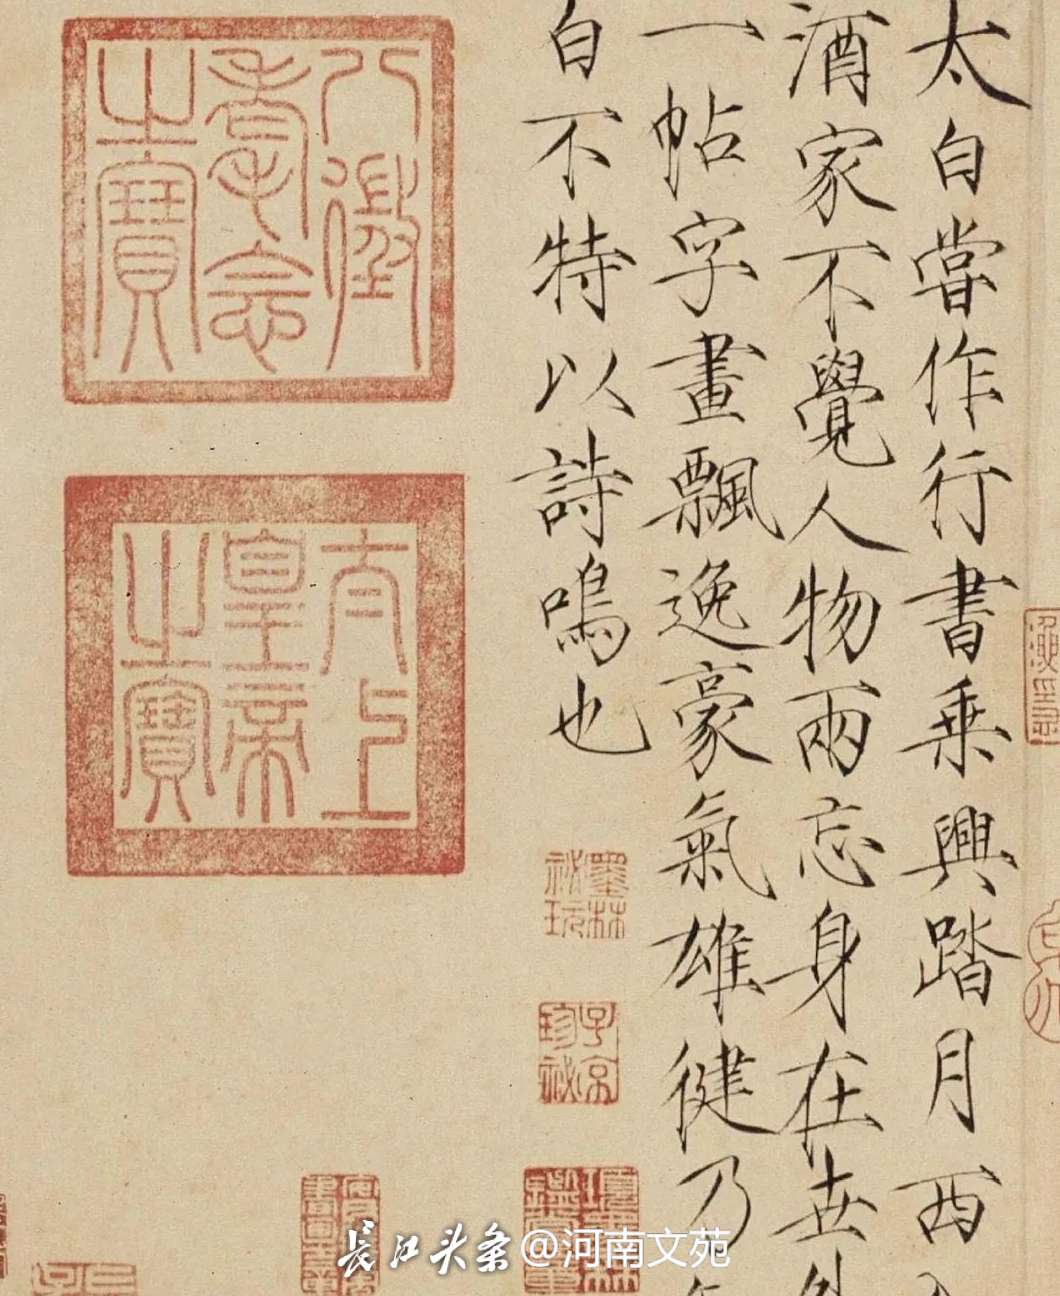 太白嘗作行書乘興踏月西
酒家不覺人物兩忘身在世外
一帖字畫飄逸豪氣雄健乃
白不特以詩鳴也
八徵耄念之寶
太上皇帝之寶
墨林祕玩
子京珍祕
長江头条@河南文苑